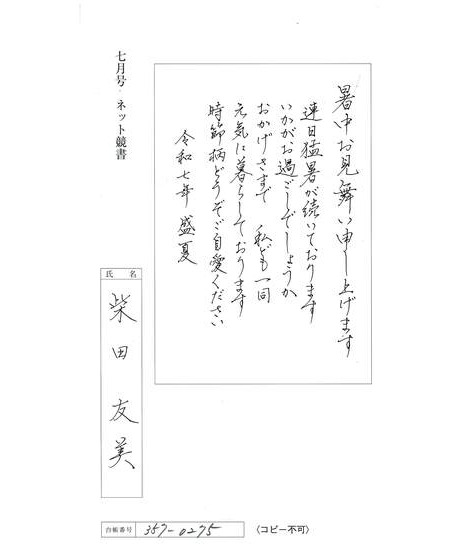 七月号・ネット競書
暑中お見舞い申し上げます
連日猛暑が続いております
いかがお過ごしでしょうか
おかげさまで 私ども一同
元気に暮らしております
時節柄どうぞご自愛ください
令和七年 盛夏
氏名
柴田友美
台帳番号 357-0275 〈コピー不可〉